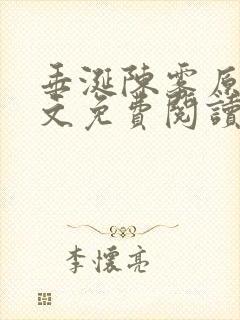 垂涎陳雾原
文免費閱讀
李懷亮